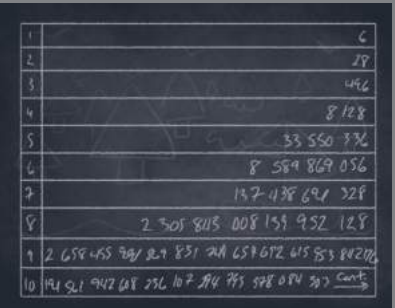 1 6
2 28
3 496
4 8 128
5 33 550 336
6 8 589 869 056
7 137 438 691 328
8 2 305 843 008 139 952 128
9 2 658 455 991 569 831 744 654 692 615 953 842 176
10 191 561 942 608 236 107 294 793 378 084 303 Cont.